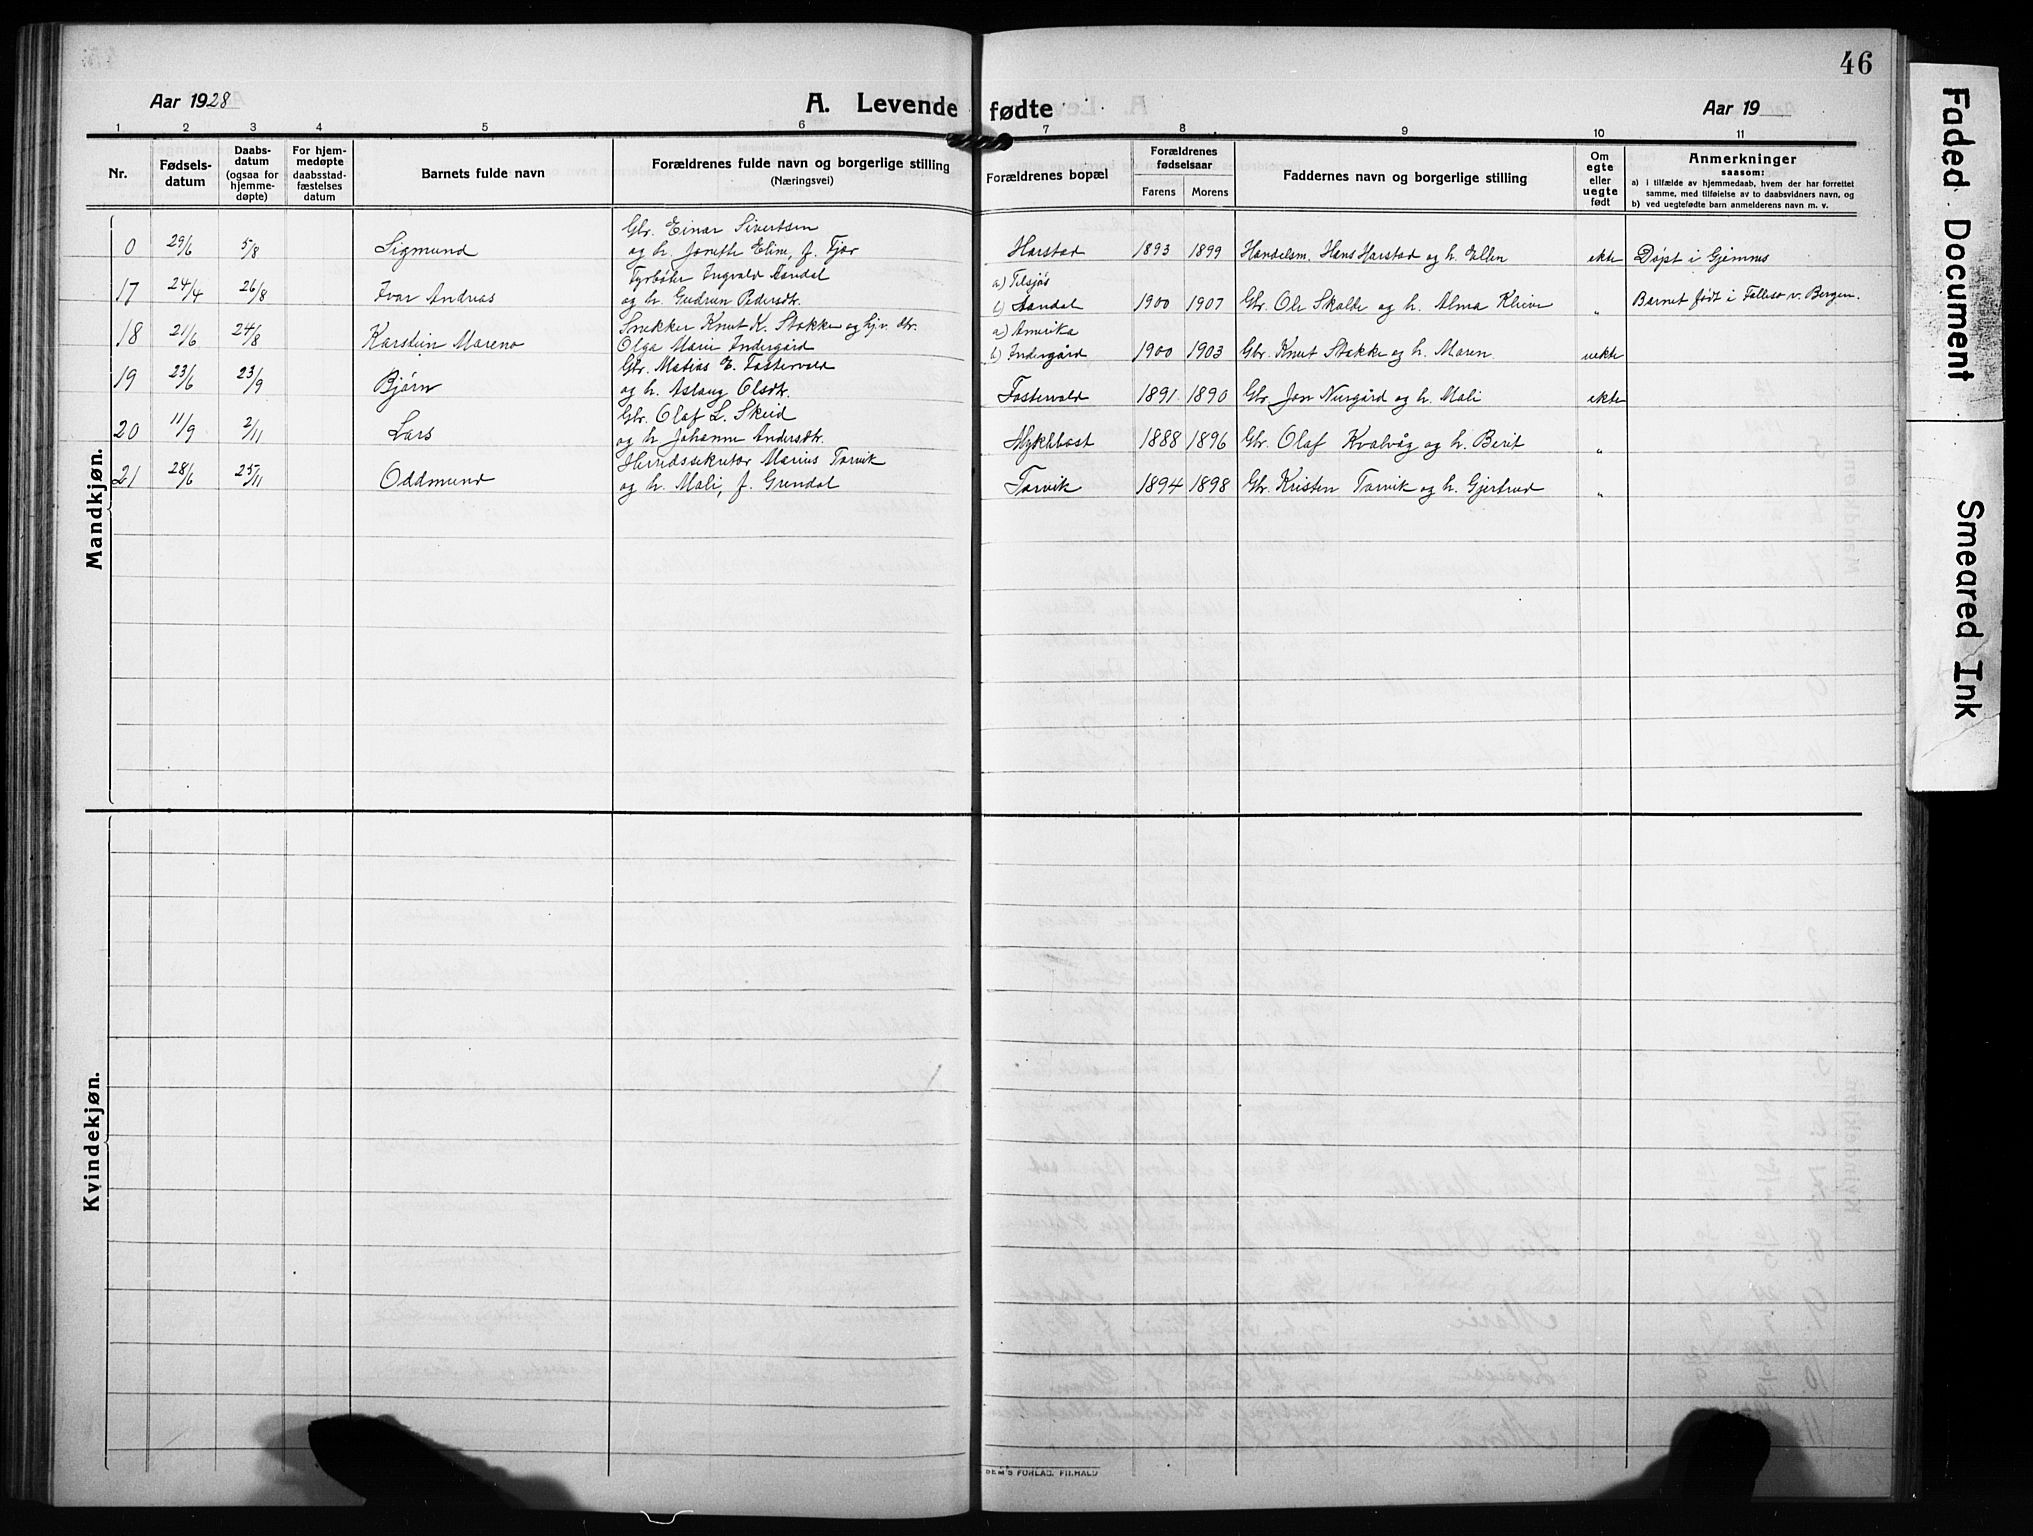 46
Aar 1928
A. Levende fødte
Aar 19
1 2 3 4 5 6 7 8 9 10 11
Nr.
Fødsels-
datum
Daabs-
datum
(ogsaa for
hjemme-
døpte)
For hjem-
medøpte
daabsstad-
fæstelses
datum
Barnets fulde navn
Forældrenes fulde navn og borgerlige stilling
(Næringsvei)
Forældrenes bopæl
Forældrenes
fødselsaar
Farens Morens
Faddernes navn og borgerlige stilling
Om
egte
eller
uegte
født
Anmerkninger
saasom:
a) i tilfælde av hjemmedaab, hvem der har forrettet
samme, med tilføielse av to daabsvidners navn, og
b) ved uegtefødte barn anmelderens navn m. v.
Mandkjøn.
Gbr. Einar Sivertsen
0 29/6 5/8 Sigmund og h. Jonette Eline, f. Fjør Harstad 1893 1899 Handelsm. Hans Harstad og h. Ellen ekte Døpt i Gjemnes
Fyrbøter Ingvald Aandal a) Tilsjøs
17 24/4 26/8 Ivar Andreas og h. Gudrun Pedersdtr. b) Aandal 1900 1907 Gbr. Ole Skalle og h. Alma Klive „ Barnet født i Follese v. Bergen.
Snekker Knut K. Stokke og hjv. dtr. a) Amerika
18 21/6 24/8 Karstein Mareno Olga Marie Indergård b) Indergård 1900 1903 Gbr. Knut Stokke og h. Maren uekte
Gbr. Matias E. Fostervold
19 23/6 23/9 Bjørn og h. Aslaug Olsdtr. Fostervold 1891 1890 Gbr. Jon Nergård og h. Mali ekte
Gbr. Olaf L. Skeid
20 11/9 2/11 Lars og h. Johanne Andersdtr. Myklbost 1888 1896 Gbr. Olaf Kvalvåg og h. Berit „
Herredssekretær Marius Torvik
21 28/6 25/11 Oddmund og h. Mali, f. Grendal Torvik 1894 1898 Gbr. Kristen Torvik og h. Gjertrud „
Kvindekjøn.
DEM'S FORLAG, FR.HALD
Faded Document
Smeared Ink